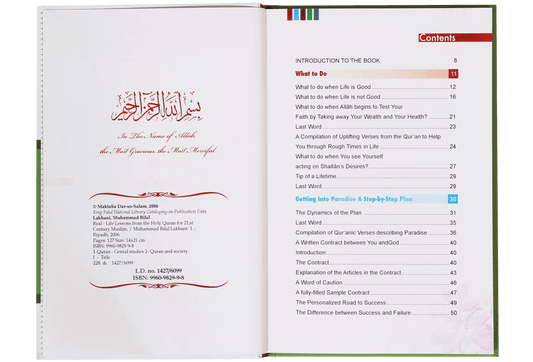 بسم الله الرحمن الرحيم
In The Name of Allâh,
the Most Gracious, the Most Merciful
© Maktaba Dar-us-Salam, 2006
King Fahd National Library Cataloging-in-Publication Data
Lakhani, Muhammad Bilal
Real - Life Lessons from the Holy Quran for 21,st
Century Muslim. / Muhammad Bilal Lakhani- I..-
Riyadh, 2006
Pages: 127 Size: 14x21 cm
ISBN: 9960-9829-9-8
1-Quran - General studies 2- Quran and society
I - Title
228. dc 1427/6099
L.D. no. 1427/6099
ISBN: 9960-9829-9-8
Contents
INTRODUCTION TO THE BOOK 8
What to Do 11
What to do when Life is Good 12
What to do when Life is not Good 16
What to do when Allâh begins to Test Your
Faith by Taking away Your Wealth and Your Health? 21
Last Word 23
A Compilation of Uplifting Verses from the Qur'an to Help
You through Rough Times in Life 24
What to do when You see Yourself
acting on Shaitân's Desires? 27
Tip of a Lifetime 29
Last Word 29
Getting Into Paradise A Step-by-Step Plan 30
The Dynamics of the Plan 31
Last Word 35
Compilation of Qur'anic Verses describing Paradise 36
A Written Contract between You andGod 40
Introduction 40
The Contract 40
Explanation of the Articles in the Contract 43
A Word of Caution 46
A fully-filled Sample Contract 47
The Personalized Road to Success 49
The Difference between Success and Failure 50